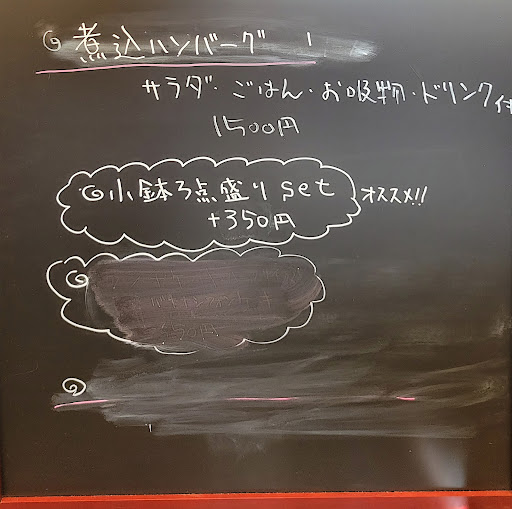 煮込ハンバーグ
サラダ・ごはん・お吸物・ドリンク付
1500円
小鉢3点盛りset オススメ!!
+350円